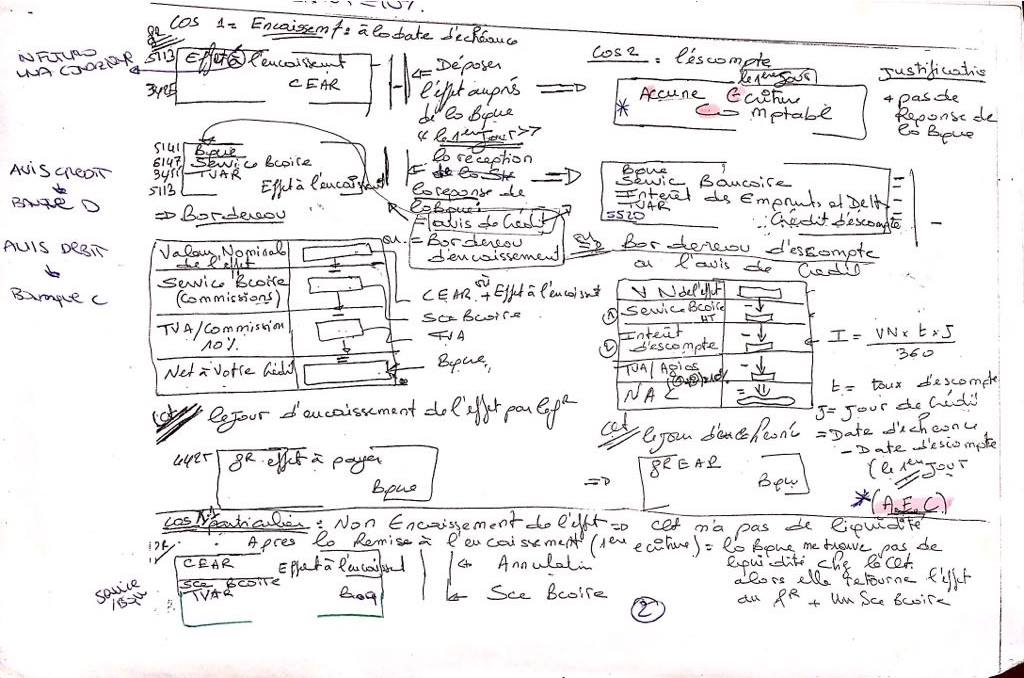 = 10%.
gR Cas 1 = Encaissemt : à la date d'échéance
Cas 2 : l'éscompte
le 1er jour
Justificatio
5113 Effet à l'encaissemt
3425 CEAR
<= Déposer
l'éffet auprés
de la Bque
"le 1er jour"
=>
* Aucune Ecriture
Comptable
+ pas de
Reponse de
la Bque
5141 Bque
6147 Service Bcaire
3455 TVAR
5113 Effet à l'encaissemt
la réception
de la Sté
la reponse de
la Bque :
= l'avis de Crédit
ou
= Bordereau
d'encaissement
=>
Bque
Servic Bancaire
Intérêt des Emprunts et Dett
TVAR
5520 Crédit d'escompte
AVIS CREDIT
BANQUE D
AVIS DEBIT
Banque C
=> Bordereau
Valeur Nominale
de l'effet
Service Bcaire
(commissions)
TVA/Commission
10%
Net à Votre Crédit
CEAR ou + Effet à l'encaissmt
Sce Bcaire
TVA
Bque
=> Bordereau d'escompte
ou l'avis de Crédit
VN de l'effet
① Service Bcaire
HT
② Intérêt
d'escompte
TVA/Agios
(①+②) x 10%
I = VN x t x J
360
t = taux d'escompte
J = Jour de Crédit
= Date d'échéance
- Date d'escompte
(le 1er Jour
* (A.E.C)
clt le jour d'encaissement de l'effet par le fR
4425 gR effet à payer
Bque
=>
clt le jour d'échéance
gR EAR
Bque
Cas N°1 particulier : Non Encaissement de l'effet => Clt n'a pas de liquidité
Après la Remise à l'encaissement (1ère ecriture) = la Bque ne trouve pas de
liquidité chez le Clt.
alors elle retourne l'éffet
au fR + Un Sce Bcaire
CEAR
Effet à l'encaissemt
Sce Bcaire
TVAR Banq
<- Annulation
<- Sce Bcaire
2